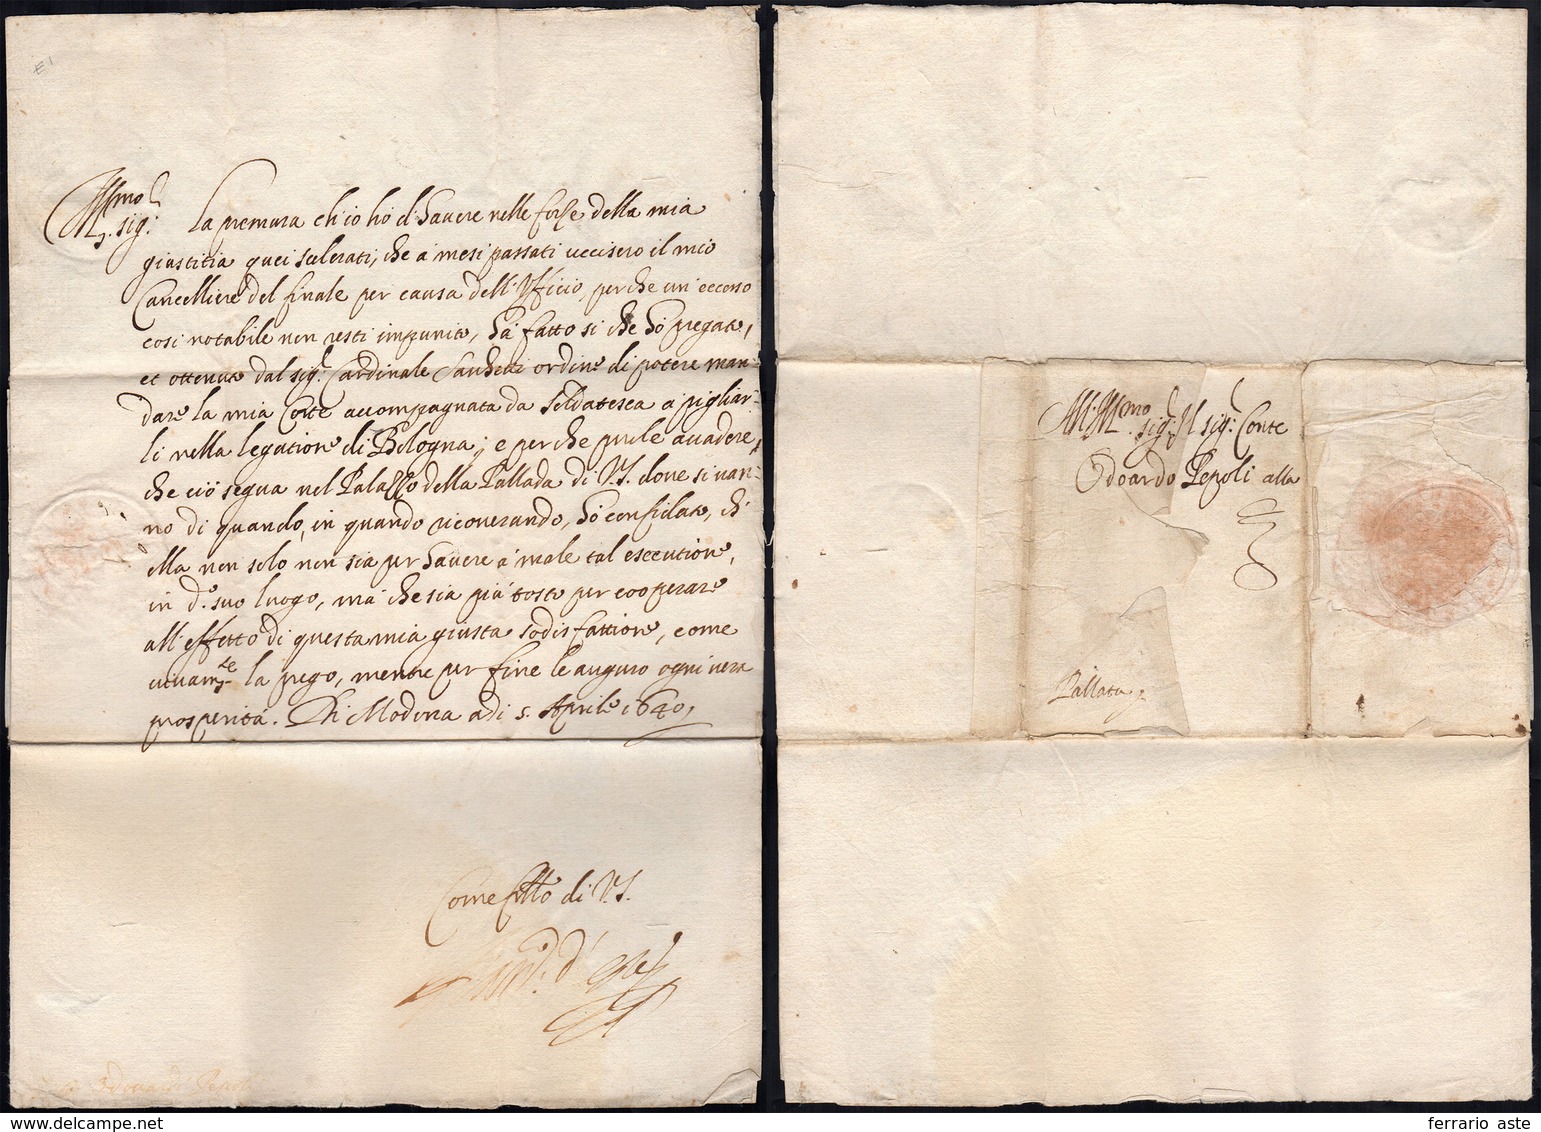 Illmo sig:r La premura ch'io hò d'havere nelle forze della mia
giustitia quei scelerati, che à mesi passati uccisero il mio
Cancelliere del finale per causa dell'Ufficio, perche un eccesso
cosi notabile non resti impunito, hà fatto si che hò pregato,
et ottenuto dal sig.r Cardinale Sacchetti ordine di potere man-
dare la mia Corte accompagnata da soldatesca à pigliar-
li nella legatione di Bologna; e perche puole accadere,
che ciò segua nel Palazzo della Pallada di V.S. dove si van-
no di quando, in quando ricoverando, hò confidato, ch'
ella non solo non sia per havere à male tal esecutione,
in d.o suo luogo, mà che sia più tosto per cooperare
all'effetto di questa mia giusta sodisfattione, come
vivam.te la prego, mentre per fine le auguro ogni vera
prosperità. Di Modona adi 5. Aprile 1640,
Come fratello di V.S.
d'Este
Odoardo Pepoli
All'Illmo sig.r Il sig.r Conte
Odoardo Pepoli alla
Pallata
E1
ferrario aste